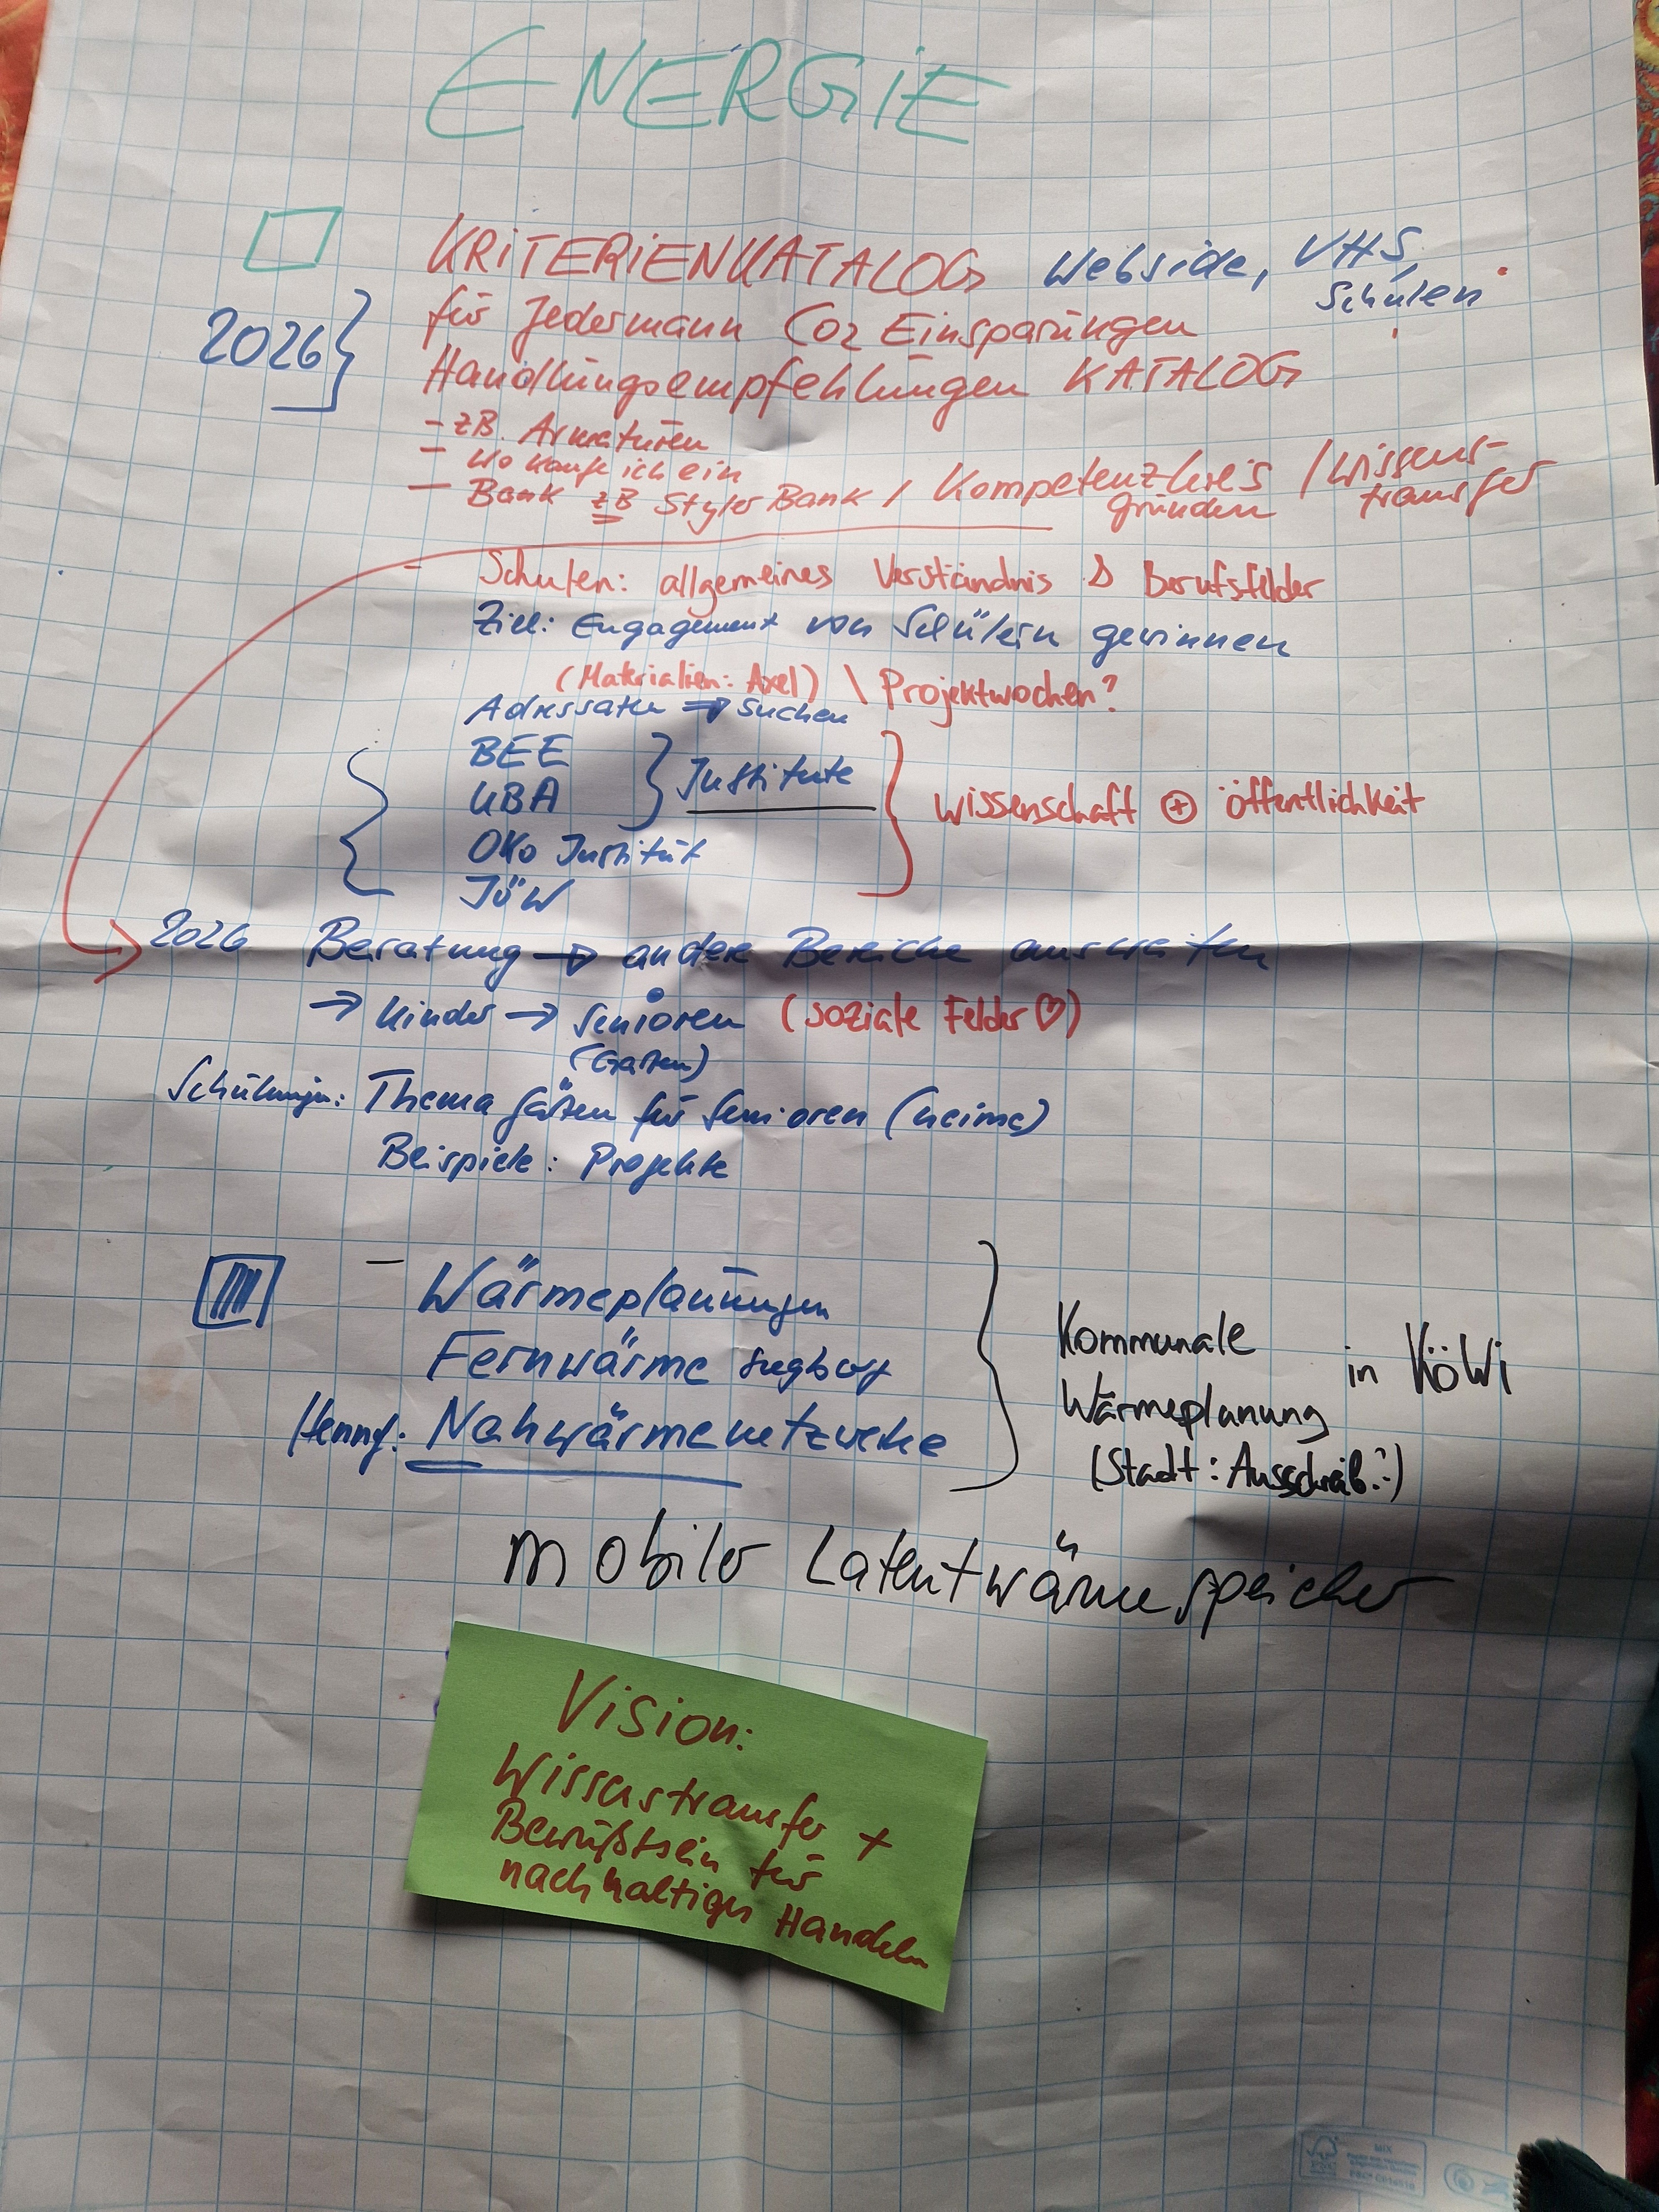 ENERGIE
KRITERIENKATALOG Webside, VHS,
Schulen
für Jedermann CO2 Einsparungen
2026
Handlungsempfehlungen KATALOG
- zB. Armaturen
- Wo kaufe ich ein
- Bank zB Styler Bank / Kompetenzkreis / Wissens-
gründen transfer
- Schulen: allgemeines Verständnis & Berufsfelder
Ziel: Engagement von Schülern gewinnen
(Materialien: Axel) \ Projektwochen?
Adressaten ⇒ suchen
BEE
UBA
Institute
Wissenschaft ⊕ öffentlichkeit
ÖKo Institut
IÖW
2026 Beratung → andere Bereiche ausweiten
→ Kinder → Senioren (soziale Felder ♡)
(Garten)
Schulungen: Thema Gärten für Senioren (heime)
Beispiele: Projekte
- Wärmeplanungen
Fernwärme Siegburg
Nahwärmenetzwerke
Kommunale
Wärmeplanung
in KöWi
(Stadt: Ausschreib.?)
mobiler Latentwärmespeicher
Vision:
Wissenstransfer +
Bewußtsein für
nachhaltiges Handeln
MIX